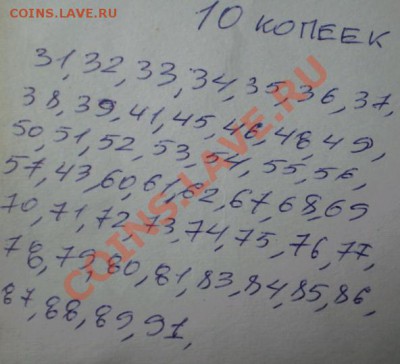 COINS.LAVE.RU
10 КОПЕЕК
31, 32, 33, 34, 35, 36, 37,
38, 39, 41, 45, 46, 48, 49,
50, 51, 52, 53, 54, 55, 56,
57, 43, 60, 61, 62, 67, 68, 69
70, 71, 72, 73, 74, 75, 76, 77,
78, 79, 80, 81, 83, 84, 85, 86,
87, 88, 89, 91,
COINS.LAVE.RU